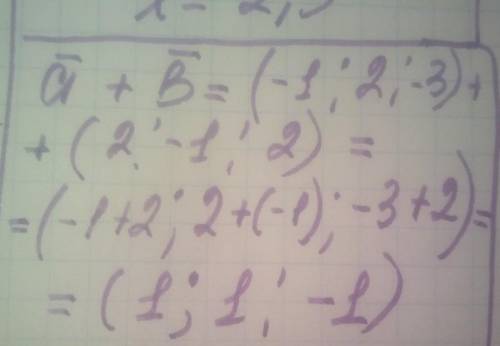 ā + B̄ = (-1; 2; -3) +
+ (2; -1; 2) =
= (-1+2; 2+(-1); -3+2) =
= (1; 1; -1)